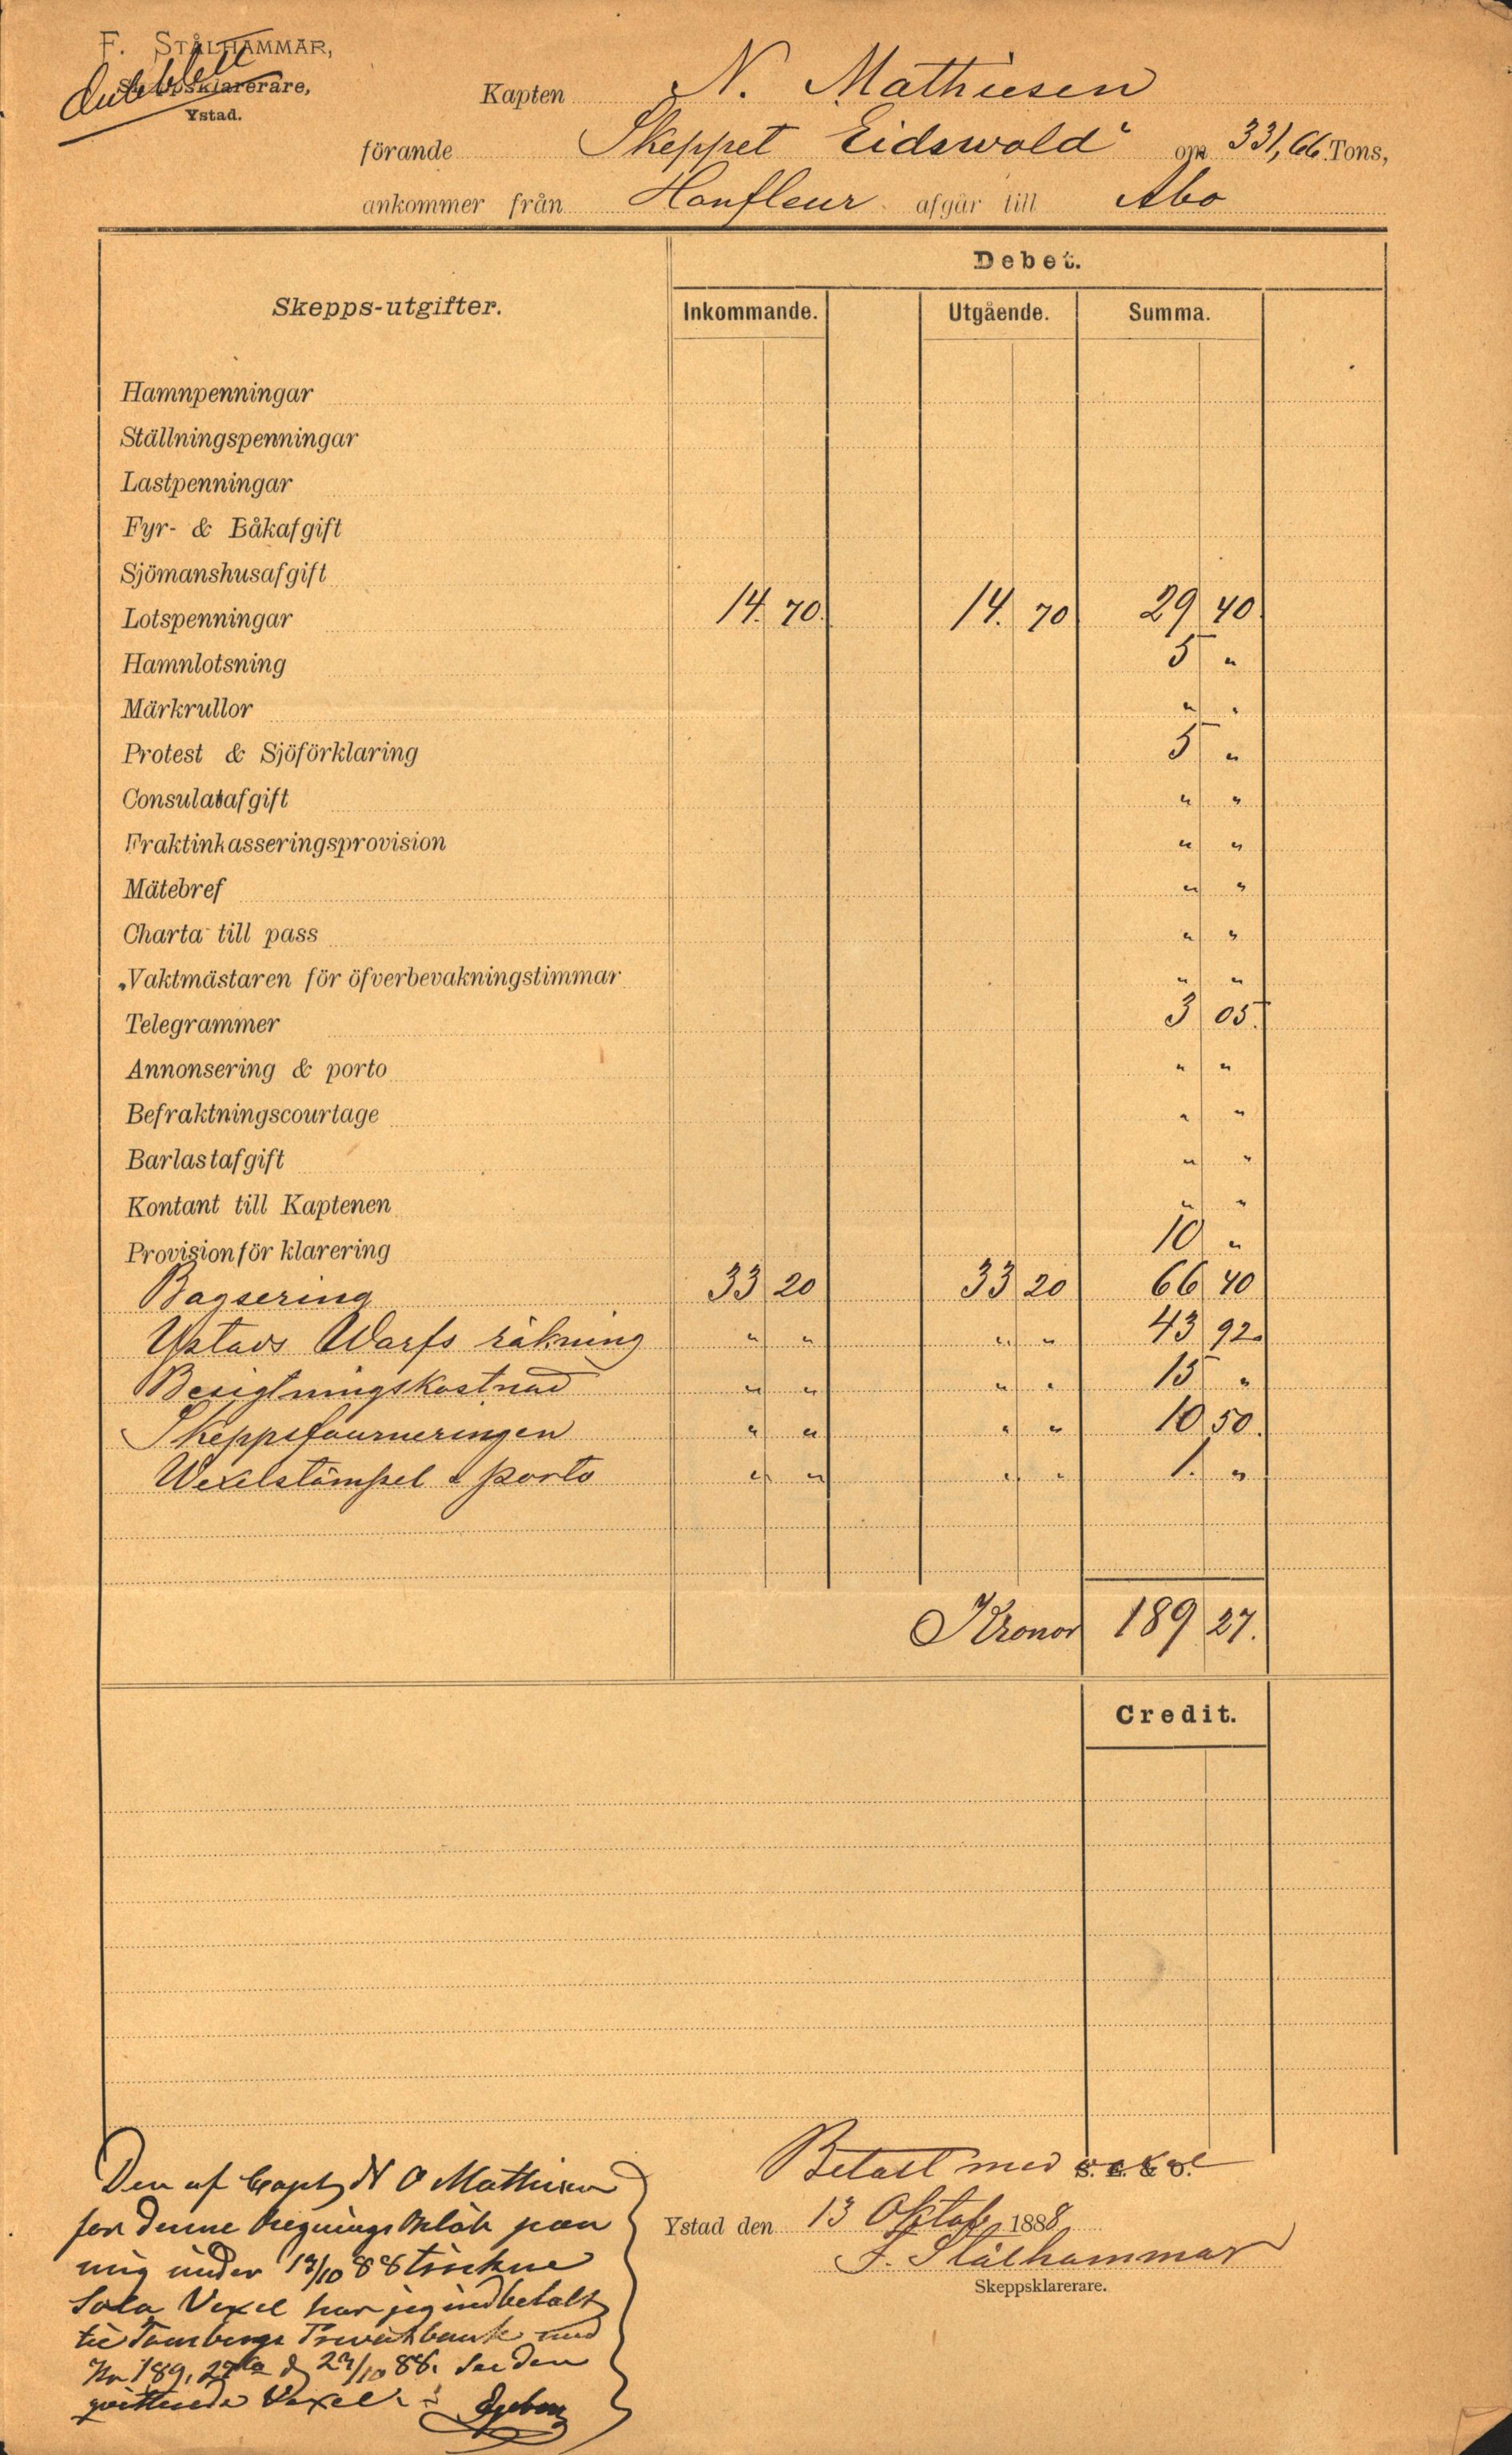 F. STÅLHAMMAR,
Skeppsklarerare,
Ystad.
Dubblett
Kapten N. Mathiesen
förande Skeppet Eidswold" om 331,66 Tons,
ankommer från Honfleur afgår till Åbo
Debet.
Skepps-utgifter. Inkommande. Utgående. Summa.
Hamnpenningar
Ställningspenningar
Lastpenningar
Fyr- & Båkafgift
Sjömanshusafgift
Lotspenningar 14. 70. 14. 70 29 40.
Hamnlotsning 5 "
Märkrullor " "
Protest & Sjöförklaring 5 "
Consulatafgift " "
Fraktinkasseringsprovision " "
Mätebref " "
Charta till pass " "
Vaktmästaren för öfverbevakningstimmar " "
Telegrammer 3 05.
Annonsering & porto " "
Befraktningscourtage " "
Barlastafgift " "
Kontant till Kaptenen " "
Provision för klarering 10 "
Bagsering 33 20 33 20 66 40
Ystads Warfs räkning " " " " 43 92
Besigtningskostnad " " " " 15 "
Skeppsfourneringen " " " " 10 50.
Wexelstämpel & porto " " " " 1. "
Kronor 189 27.
Credit.
Betalt med vexel
S. E. & O.
Ystad den 13 Oktob 1888
F. Stålhammar
Skeppsklarerare.
Den af Capt N O Mathisen
for denne Regnings Beløb paa
mig under 13/10 88 trukne
Sola Vexel har jeg indbetalt
til Tønsbergs Privatbank med
Kr 189,27 d 23/10 88. See den
qvitterede Vexel.